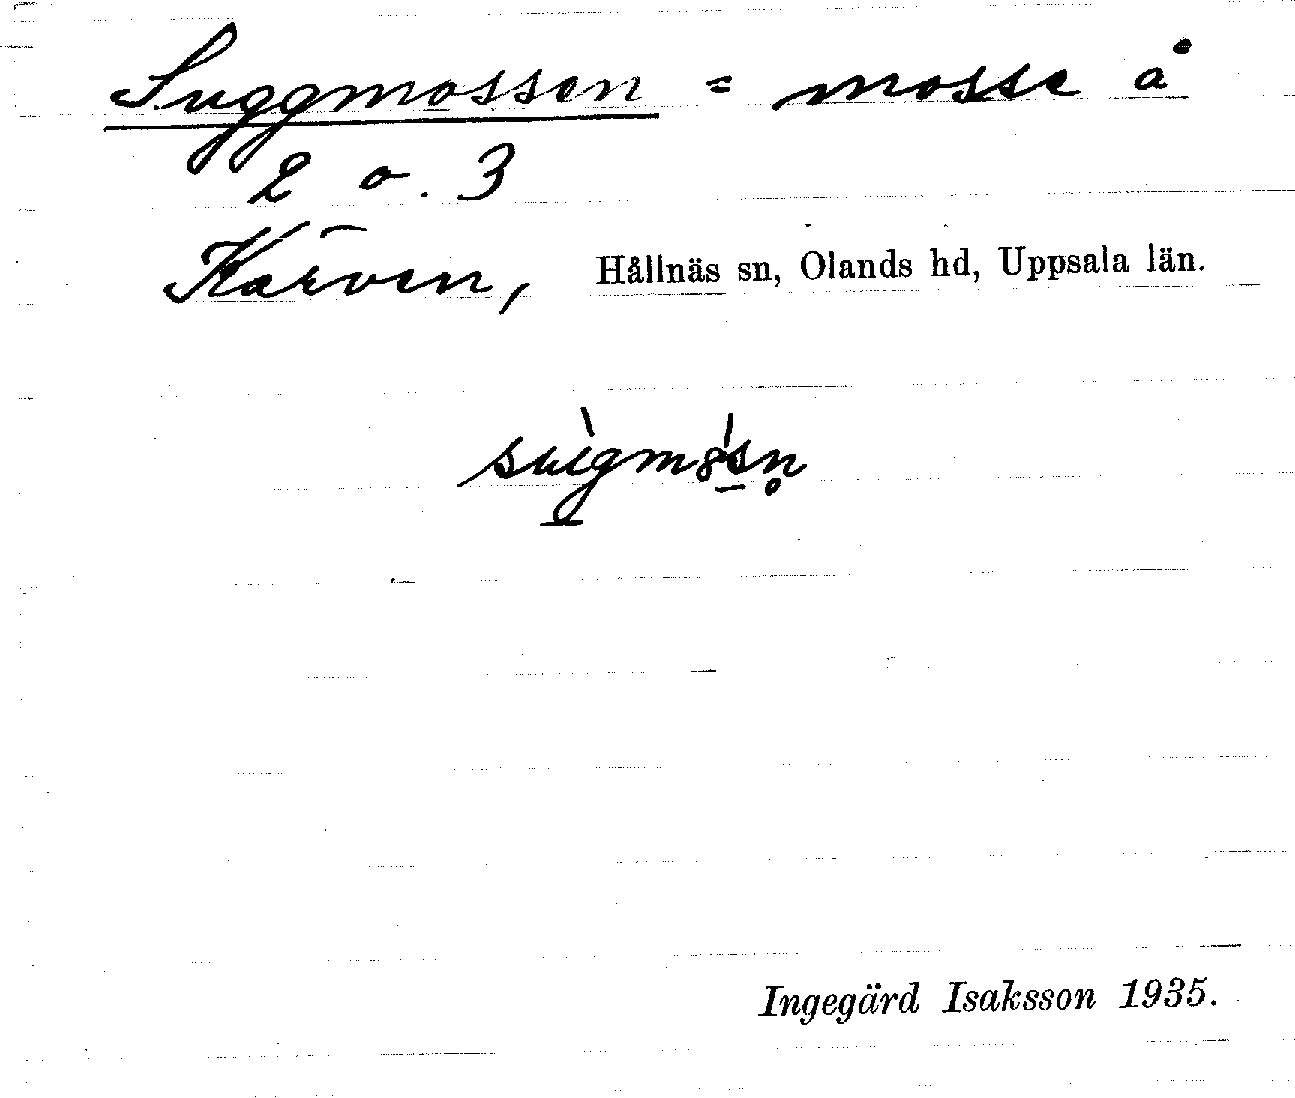 Suggmossen = mosse å
2 o. 3
Kärven, Hållnäs sn, Olands hd, Uppsala län.
Ingegärd Isaksson 1935.